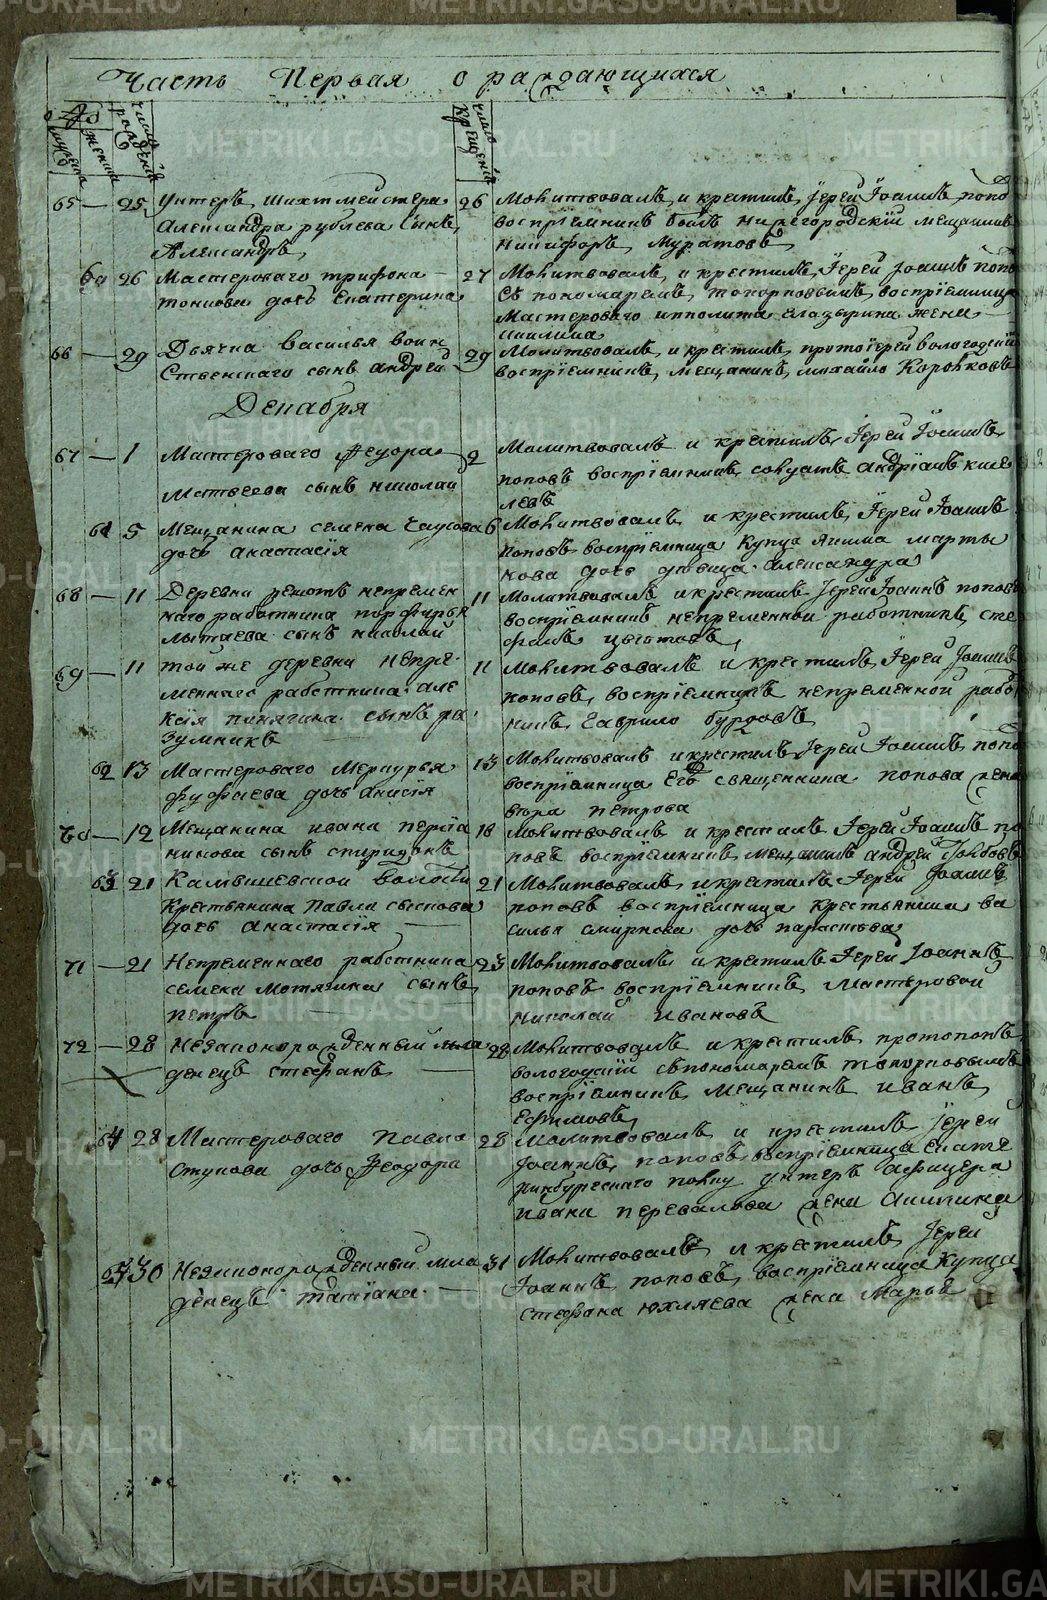 Часть Первая о раждающихся
№
мужеска
женска
число рожденія
число крещенія
65 — 25 Унтеръ шихтмейстера
Александра рублева сынъ
Александръ
26 Молитвовалъ и крестилъ Іерей Іоаннъ попо
воспріемникъ былъ нижегородскій мещанинъ
никифоръ Муратовъ
26 Мастероваго трифона
дочь Екатерина
27 Молитвовалъ и крестилъ Іерей Іоаннъ попо
съ пономаремъ топорковымъ воспріемница
Мастероваго ипполита Глазырина жена
66 — 29 Дьячка василья воин
ственскаго сынъ андрей
29 Молитвовалъ и крестилъ протоіерей вологодскій
воспріемникъ мещанинъ михайло Коровковъ
Декабря
67 — 1 Мастероваго Федора
Матвеева сынъ николай
2 Молитвовалъ и крестилъ Іерей Іоаннъ
поповъ воспріемникъ солдатъ андріанъ кисе
левъ
61 5 Мещанина семена Чаусова
дочь анастасія
6 Молитвовалъ и крестилъ Іерей Іоаннъ
поповъ воспріемница Купца якима марты
нова дочь девица александра
68 — 11 Деревни решотъ непремен
наго работника порфирья
сынъ николай
11 Молитвовалъ и крестилъ Іерей Іоаннъ поповъ
воспріемникъ непременной работникъ сте
фанъ
69 — 11 той же деревни непре
меннаго работника але
ксія пинягина сынъ ра
зумникъ
11 Молитвовалъ и крестилъ Іерей Іоаннъ
поповъ воспріемникъ непременной рабо
никъ Гаврило бурдовъ
62 13 Мастероваго Меркурья
дочь анисія
13 Молитвовалъ и крестилъ Іерей Іоаннъ попо
воспріемница Его священника попова жена
вера петрова
70 — 12 Мещанина ивана
сынъ спиридонъ
18 Молитвовалъ и крестилъ Іерей Іоаннъ по
повъ воспріемникъ мещанинъ андрей
63 21 Камышевской волости
Крестьянина Павла сыскова
дочь анастасія
21 Молитвовалъ и крестилъ Іерей Іоаннъ
поповъ воспріемница крестьянина ва
силья смирнова дочь парасковья
71 — 21 Непременнаго работника
семена мотякина сынъ
петръ
23 Молитвовалъ и крестилъ Іерей Іоаннъ
поповъ воспріемникъ Мастеровой
николай Ивановъ
72 — 28 Незаконорожденный мла
денецъ стефанъ
28 Молитвовалъ и крестилъ протопопъ
вологодскій съ пономаремъ топорковымъ
воспріемникъ мещанинъ иванъ
Ефимовъ
64 28 Мастероваго Павла
Ступова дочь Феодора
28 Молитвовалъ и крестилъ Іерей
Іоаннъ поповъ воспріемница Екате
ринбурскаго полку унтеръ афицера
ивана перевалова жена Акилина
65 30 Незаконорожденный мла
денецъ татіана
31 Молитвовалъ и крестилъ Іерей
Іоаннъ поповъ воспріемница Купца
стефана юхляева жена Марья
METRIKI.GASO-URAL.RU